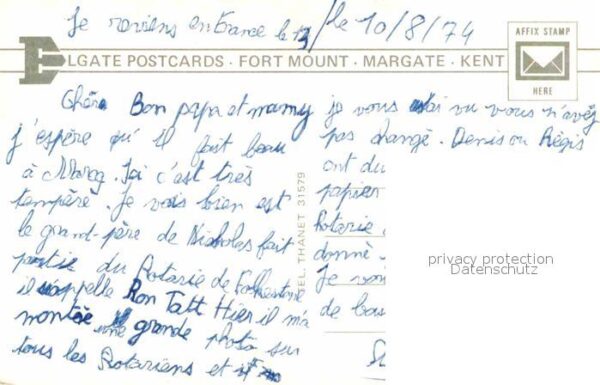 Je reviens en France le 13 / le 10/8/74
AFFIX STAMP
HERE
ELGATE POSTCARDS · FORT MOUNT · MARGATE · KENT
Chère Bon papa et mamy
j'espère qu'il fait beau
à Marcq. Ici c'est très
tempéré. Je vais bien et
le grand-père de Nicholas fait
partie du Rotarie de Folkestone
il s'appelle Ron Tatt Hier il m'a
montée une grande photo sur
tous les Rotariens et
TEL. THANET 31579
je vous ai vu vous n'avéz
pas changé. Denis ou Régis
ont du
papier
Rotarie
donné.
Je
de
privacy protection
Datenschutz